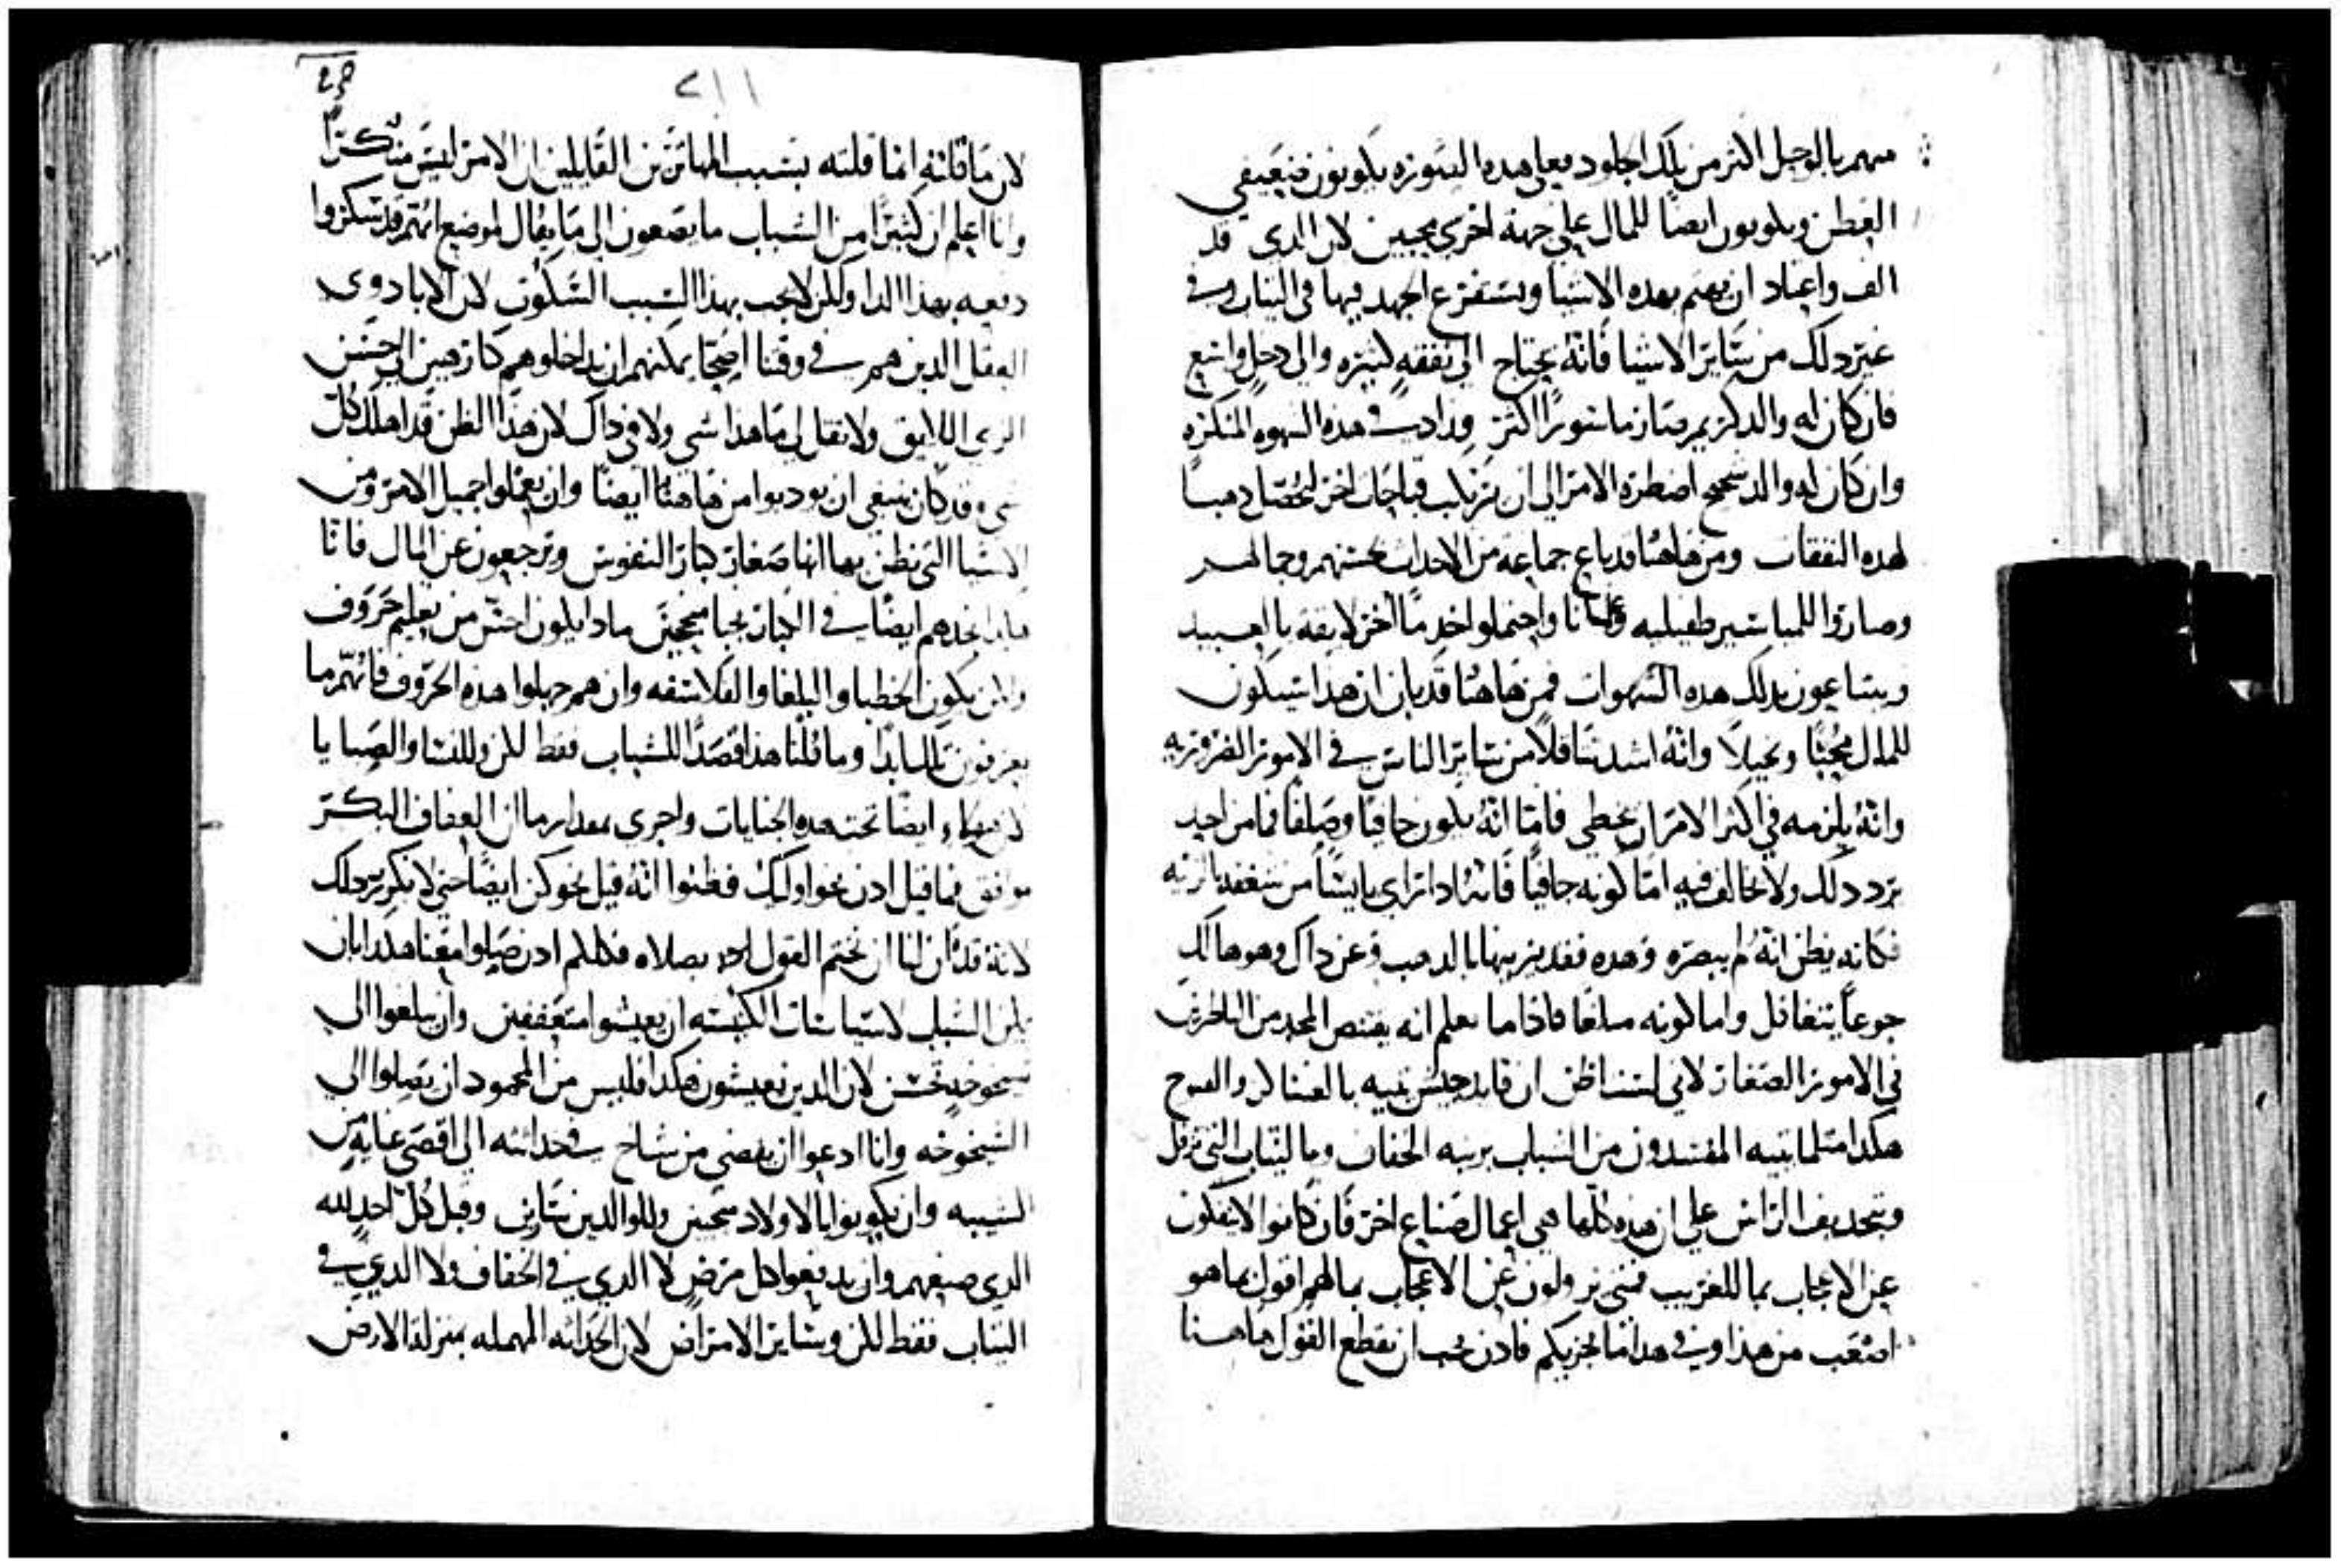 منهم بالوحل اكتر من تلك الجلود فعلى هده الصوره يكونون ضعيفي
الفطن ويكونون ايضا للمال على جهة اخرى محبين لان الدى قد
الف واعتاد ان يهتم بهده الاشيا ويستفرغ الجهد فيها في التياب وفي
غير دلك من سَاير الاشيا فانهُ يحتاج الى نفقهٍ كتيره والى دخلٍ واسع
فان كان له والد كريم صَار ماسورًا اكتر وزادت في هده الشهوه المنكره
وان كان له والد شحيح اضطره الامر الى ان يرتكب قباحات اخر ليحصّل دهبًا
لهده النفقات ومن هاهنا قد باع جماعة من الاحداث حسنهم وجمالهم
وصاروا للمياسير طفيليه وغلمانا واحتملوا خدمًا اخر لايقه بالعبيد
ويبتاعون بدلك هده الشهوات فمن هاهنا قد بان ان هدا سيكون
للمال مُحبًا وبخيلاً وانهُ اشد تتاقلاً من سَاير الناس في الامور الضروريه
وانهُ يلزمه في اكتر الامر ان يخطى فامّا انهُ يكون جافيًا وصلفًا فما من احدٍ
يرد دلك ولا يخالف فيه امّا كونه جافيًا فانهُ ادا راى بايسًا من
فكانه يظن انهُ لم يبصره وهده فقد يزينها بالدهب وعن داك وهو هالك
جوعًا يتغافل واما كونه صلفًا فادا ما تعلم انه يقتنص المجد من الناظرين
في الامور الصغار لاني لست اظن ان قايد جيش يتيه بالعساكر والفتوح
هكدا متلما يتيه المفسدون من الشباب بزينه الخفاف وبالتياب التي ترفل
وبتحديف الراس على ان هده كلها هي اعمال صناع اخر فان كانوا لا ينفكون
عن الاعجاب بما للغريب فمتى يزولون عن الاعجاب بما لهم اقول بما هو
اصعب من هدا وفي هدا ما يجزيكم فادن يجب ان نقطع القول هاهنا

٢١١
لان ما قلته انما قلته بسبب المهاترين القايلين ان الامر ليس منكرًا
وانا اعلم ان كتيرًا من الشباب ما يصغون الى ما يقال لموضع انهم قد سكروا
دفعه بهدا الدا ولكن لا يجب بهدا السبب السّكوت لان الابا دوى
العقل الدين هم في وقتنا اصحّا يمكنهم ان يداخلوهم كارهين الى حسن
الزى اللايق ولا تقل لى ما هدا شى ولا في داك لان هدا الظن قد اهلك كل
شى وقد كان ينبغى ان يودبوا من هاهنا ايضًا وان يعملوا جميل الامر ومن
الاشيا التي يظن بها انها صغار كبار النفوس ويرجعون عن المال فانا
نجدهم ايضًا في الكبار نجبا محبين مادا يكون احسّ من تعليم حروف
ولكن يكون الخطبا والبلغا والفلاسفه وان هم جهلوا هده الحروف فانّهم ما
يعرفون تلك ابدًا وما قلنا هدا قصدًا للشباب فقط لكن وللنسا والصبايا
لان هولاء ايضًا تحت هده الجنايات واحرى بمقدار ما ان العفاف البكر
موافق فما قيل ادن نحو اوليك فظنوا انهُ قيل نحوكن ايضًا حتى لا نكرر دلك
لانهُ قد آن لنا ان نختم القول بصلاه فكلكم ادن صَلوا معنا هكدا بان
يمكن الشباب لاسيما شباب الكنيسه ان يعيشوا متعففين وان يبلغوا الى
شيخوخةٍ تحسن لان الدين يعيشون هكدا فليس من المحمود ان يصلوا الى
الشيخوخه وانا ادعو ان يفضى من شاخ في حداتته الى اقصى غايةٍ من
الشيبه وان يكونوا للاولاد محبين وللوالدين سَارين وقبل كُل احدٍ لله
الدي صنعهم وان يدفعوا كل مرضٍ لا الدي في الخفاف ولا الدي في
التياب فقط لكن وسَاير الامراض لان الحداته المهمله بمنزلة الارض